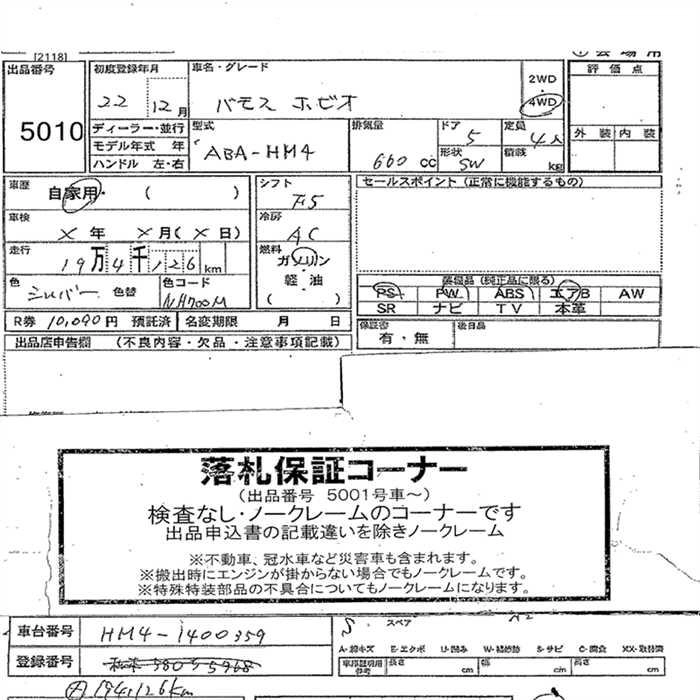 [2118]
出品番号 初度登録年月 車名・グレード
評価点
5010 22 12月 バモス ホビオ 2WD 4WD
ディーラー・並行 型式 排気量 ドア 5 定員 4人
外装 内装
モデル年式 年 ABA-HM4 660 cc 形状 SW 積載 kg
ハンドル 左・右
車歴 自家用・( ) シフト F5 セールスポイント (正常に機能するもの)
車検 × 年 × 月(× 日) 冷房 AC
走行 19万4千126km 燃料 ガソリン
軽・油
( ・ )
色 シルバー 色替 色コード NH700M
(純正品に限る)
PS PW ABS エアB AW
SR ナビ TV 本革
R券 10,090円 預託済 名変期限 月 日
保証書 有・無 後日品
出品店申告欄 (不良内容・欠品・注意事項記載)
落札保証コーナー
(出品番号 5001号車~)
検査なし・ノークレームのコーナーです
出品申込書の記載違いを除きノークレーム
※不動車、冠水車など災害車も含まれます。
※搬出時にエンジンが掛からない場合でもノークレームです。
※特殊特装部品の不具合についてもノークレームになります。
車台番号 HM4-1400359
スペア
登録番号
A-線キズ E-エクボ U-凹み W-補修跡 S-サビ C-腐食 XX-取替済
車庫証明用参考 長さ cm 幅 cm 高さ cm
194126km